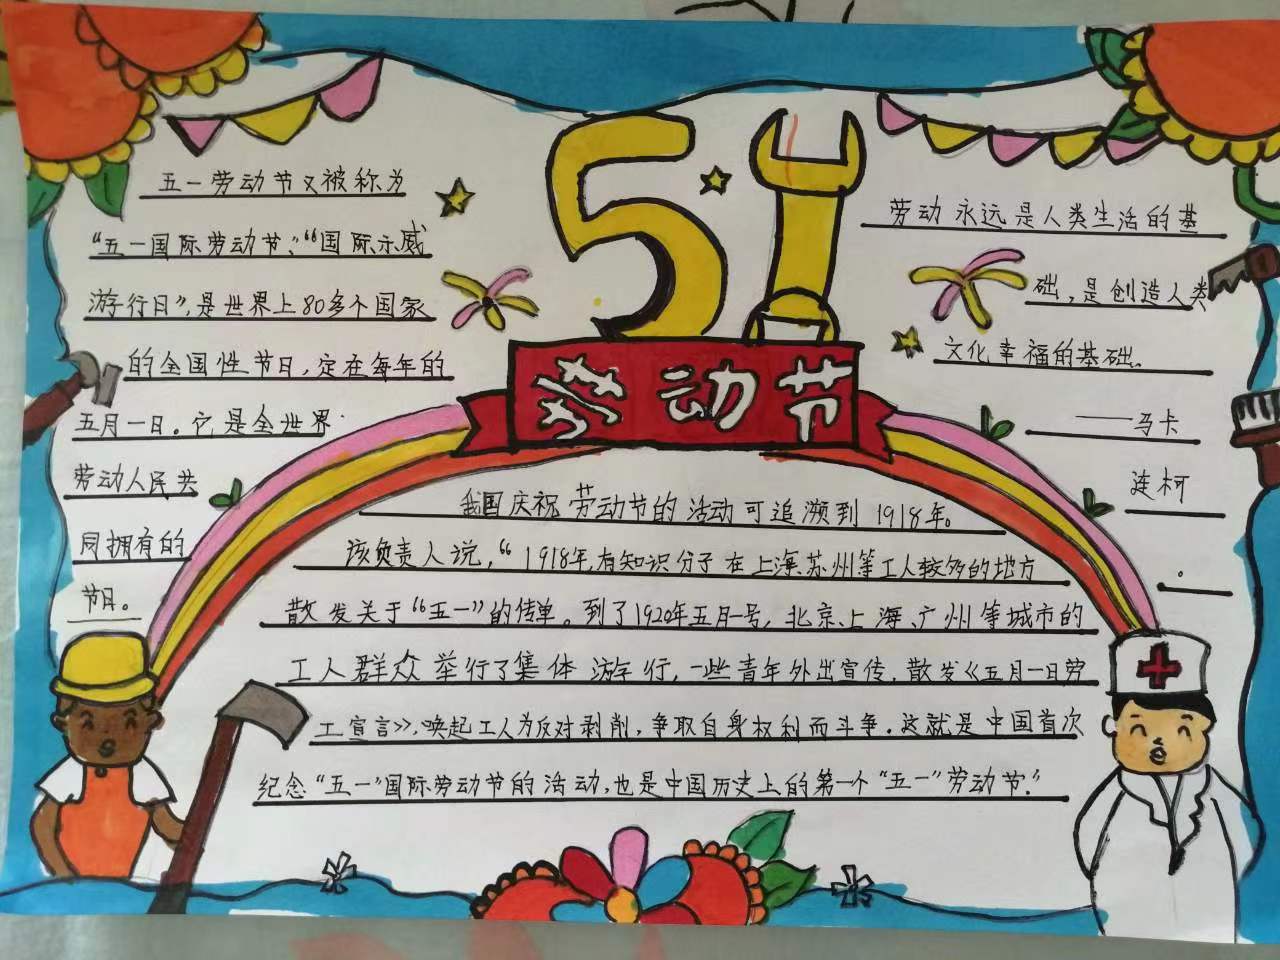 51
劳动节
五一劳动节又被称为
“五一国际劳动节”、“国际示威
游行日”,是世界上80多个国家
的全国性节日,定在每年的
五月一日。它是全世界
劳动人民共
同拥有的
节日。
劳动永远是人类生活的基
础,是创造人类
文化幸福的基础。
——马卡
连柯
。
我国庆祝劳动节的活动可追溯到1918年。
该负责人说,“1918年,有知识分子在上海、苏州等工人较多的地方
散发关于“五一”的传单。到了1920年五月一号,北京、上海、广州等城市的
工人群众举行了集体游行,一些青年外出宣传,散发《五月一日劳
工宣言》,唤起工人为反对剥削,争取自身权利而斗争。这就是中国首次
纪念“五一”国际劳动节的活动,也是中国历史上的第一个“五一”劳动节.”